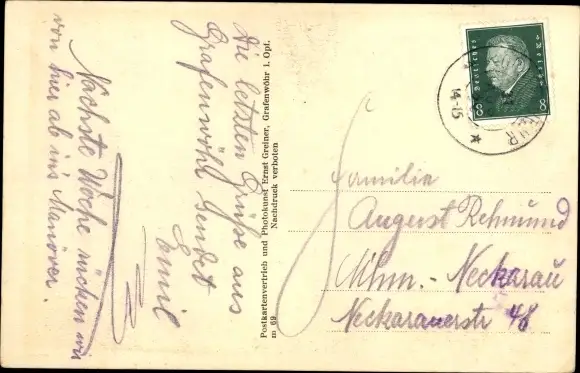 Die letzten Grüße aus
Grafenwöhr sendet
Emil
Nächste Woche rücken wir
von hier ab ins Manöver.
Postkartenvertrieb und Photokunst Ernst Greiner, Grafenwöhr i. Opf.
Nachdruck verboten
m 69
Deutsches Reich
8 8
14-15
Familie
August Rehmund
Mhm.-Neckarau
Neckarauerstr 48